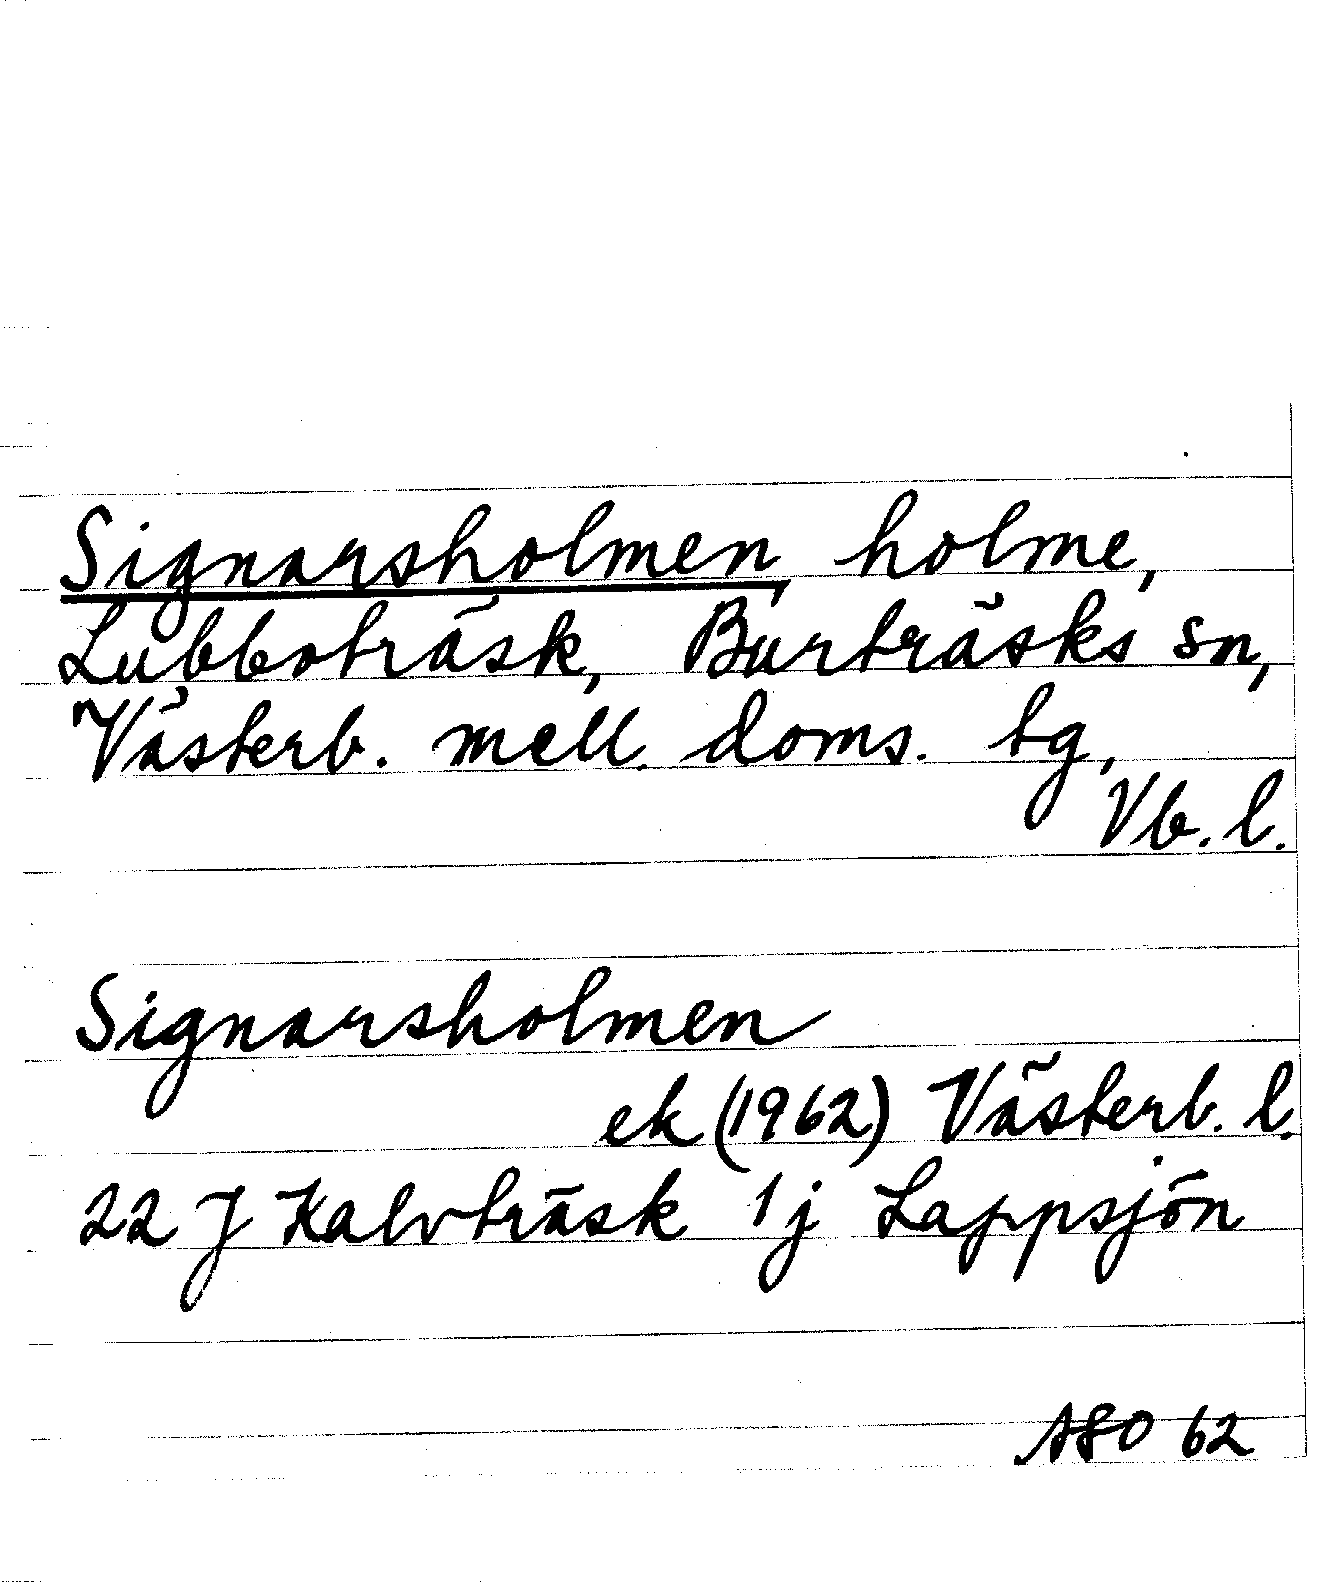 Signarsholmen, holme,
Lubboträsk, Burträsks sn,
Västerb. mell. doms. tg,
Vb. l.
Signarsholmen
ek (1962) Västerb. l.
22 J Kalvträsk 1j Lappsjön
ASO 62